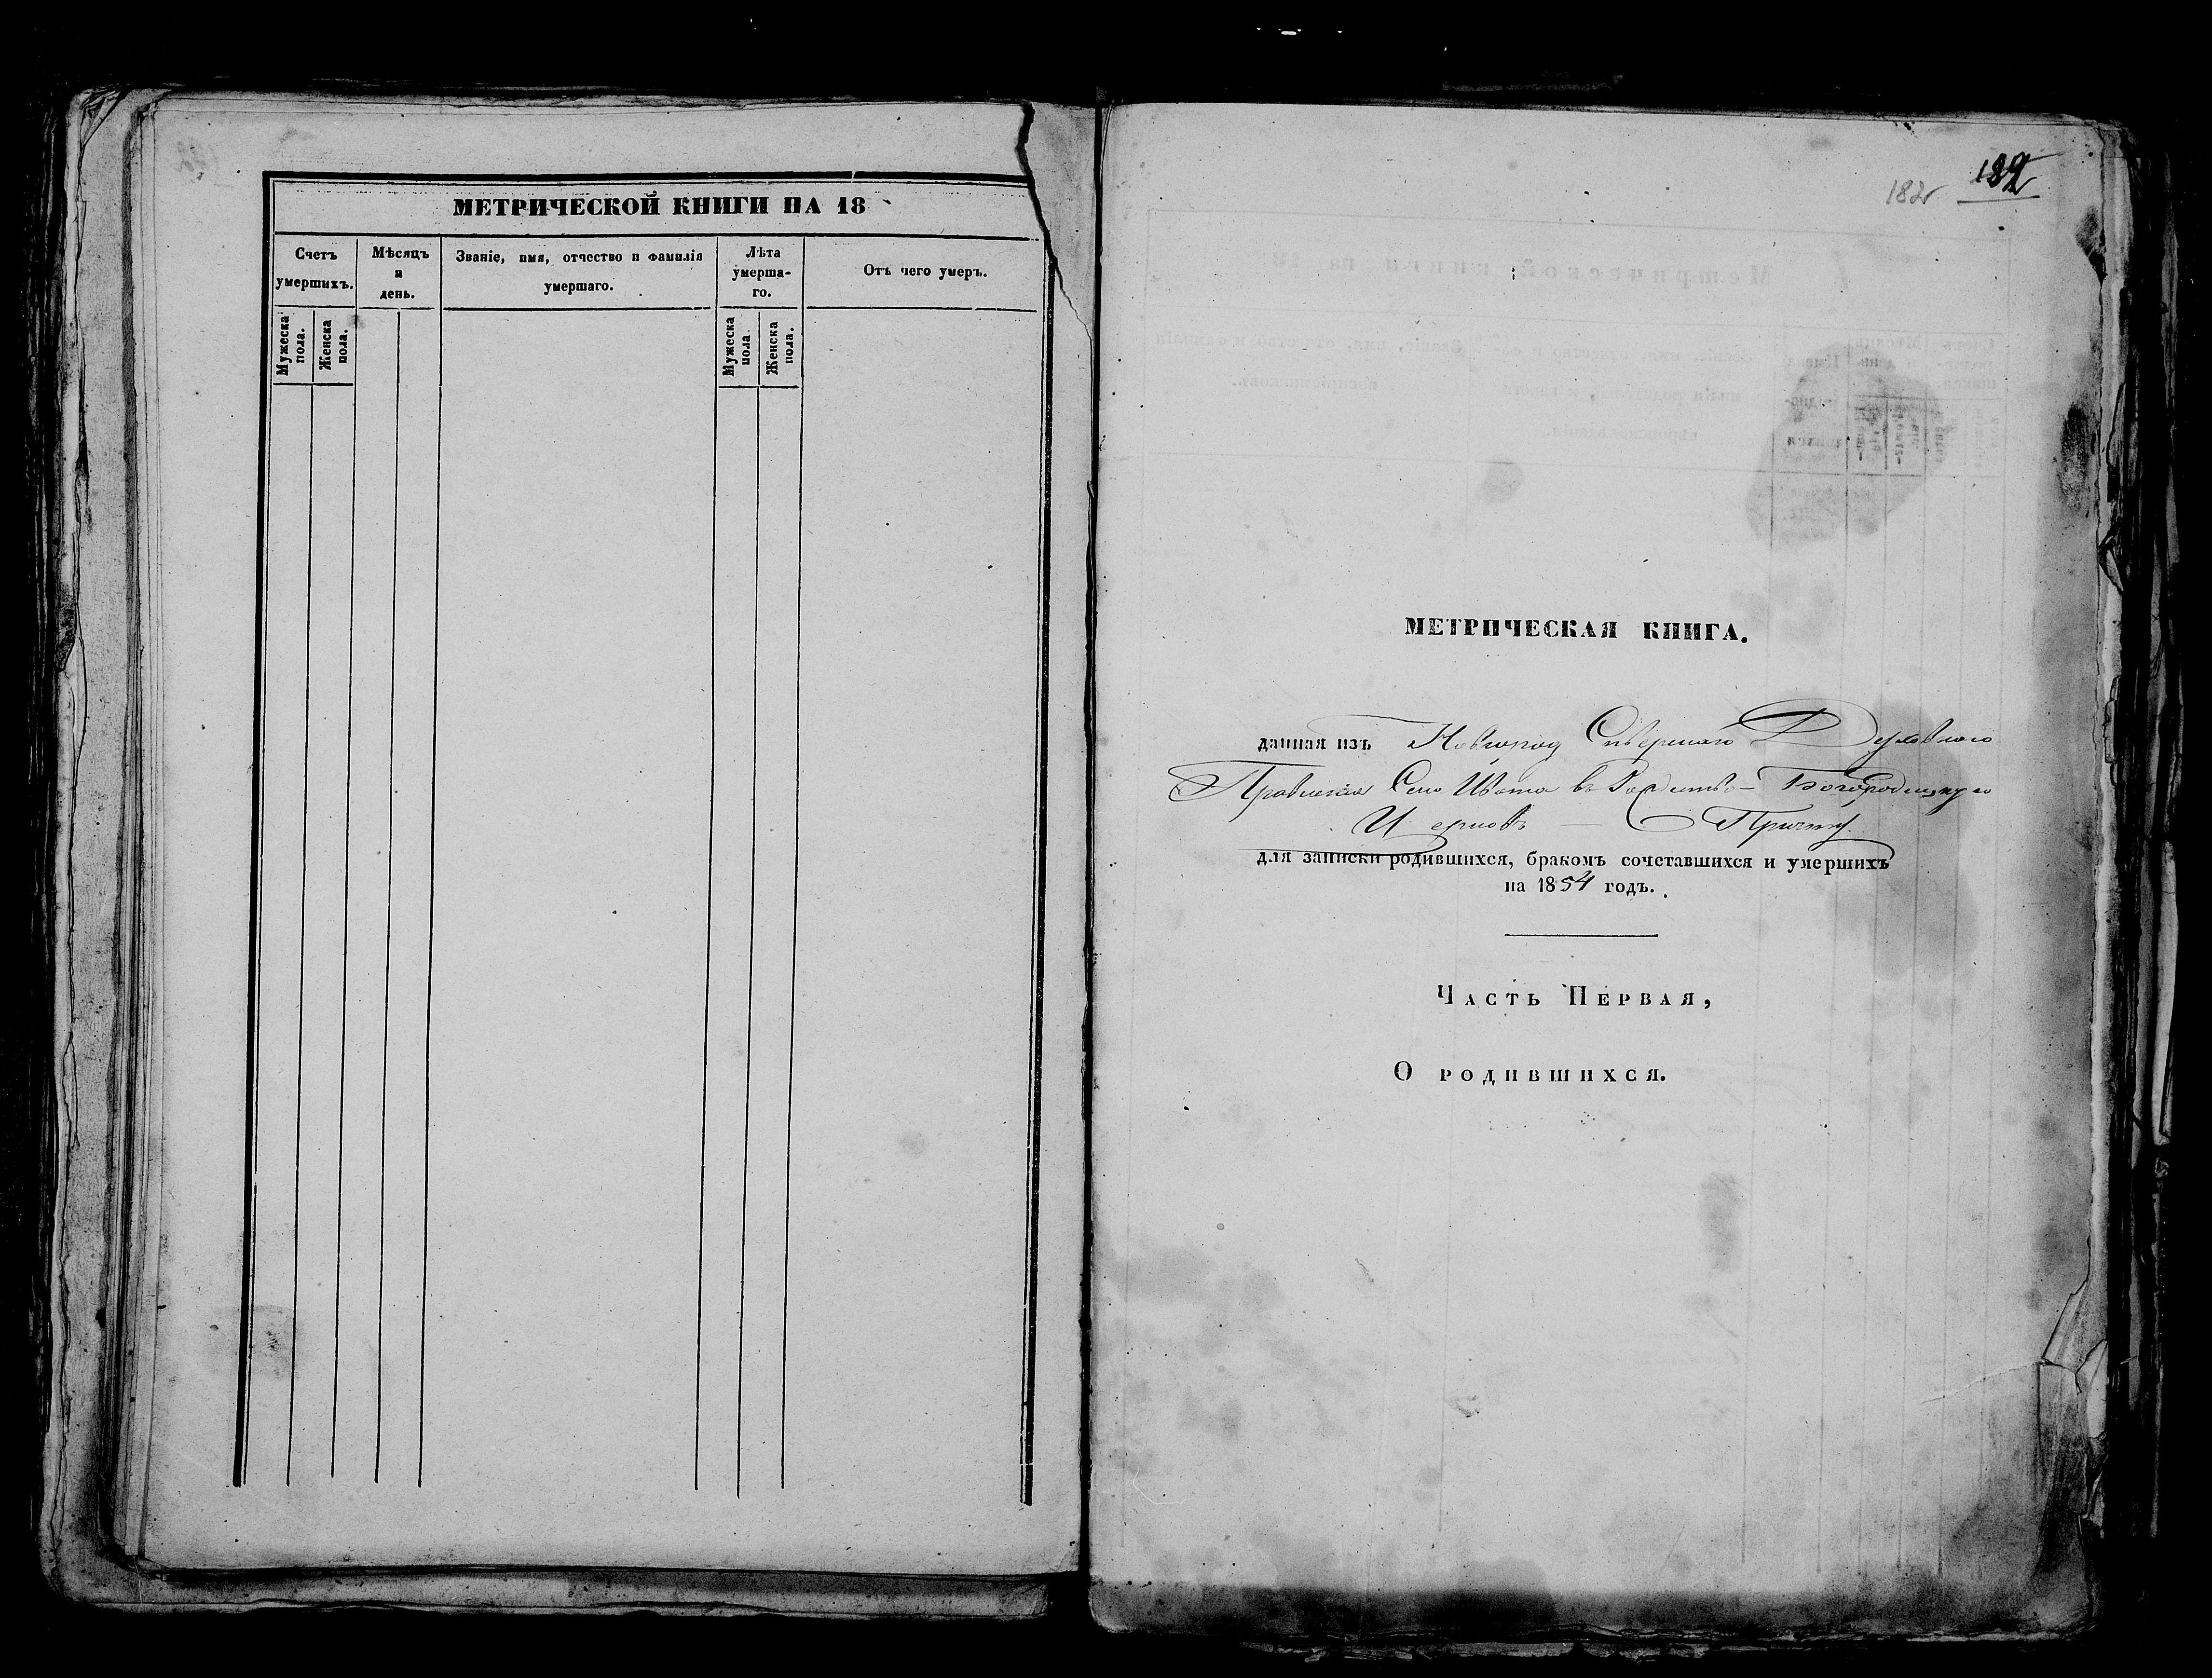 МЕТРИЧЕСКОЙ КНИГИ НА 18
Счетъ
умершихъ.
Мѣсяцъ
и
день.
Званіе, имя, отчество и фамилія
умершаго.
Лѣта
умерша-
го.
Отъ чего умеръ.
Мужеска
пола.
Женска
пола.
Мужеска
пола
Женска
пола.
182
МЕТРИЧЕСКАЯ КНИГА.
данная изъ Новгород Сѣверскаго Духовнаго
Правленія Села Ивота въ Рождество-Богородицкую
Церковь Причту.
для записки родившихся, бракомъ сочетавшихся и умершихъ
на 1854 годъ.
Часть Первая,
О родившихся.